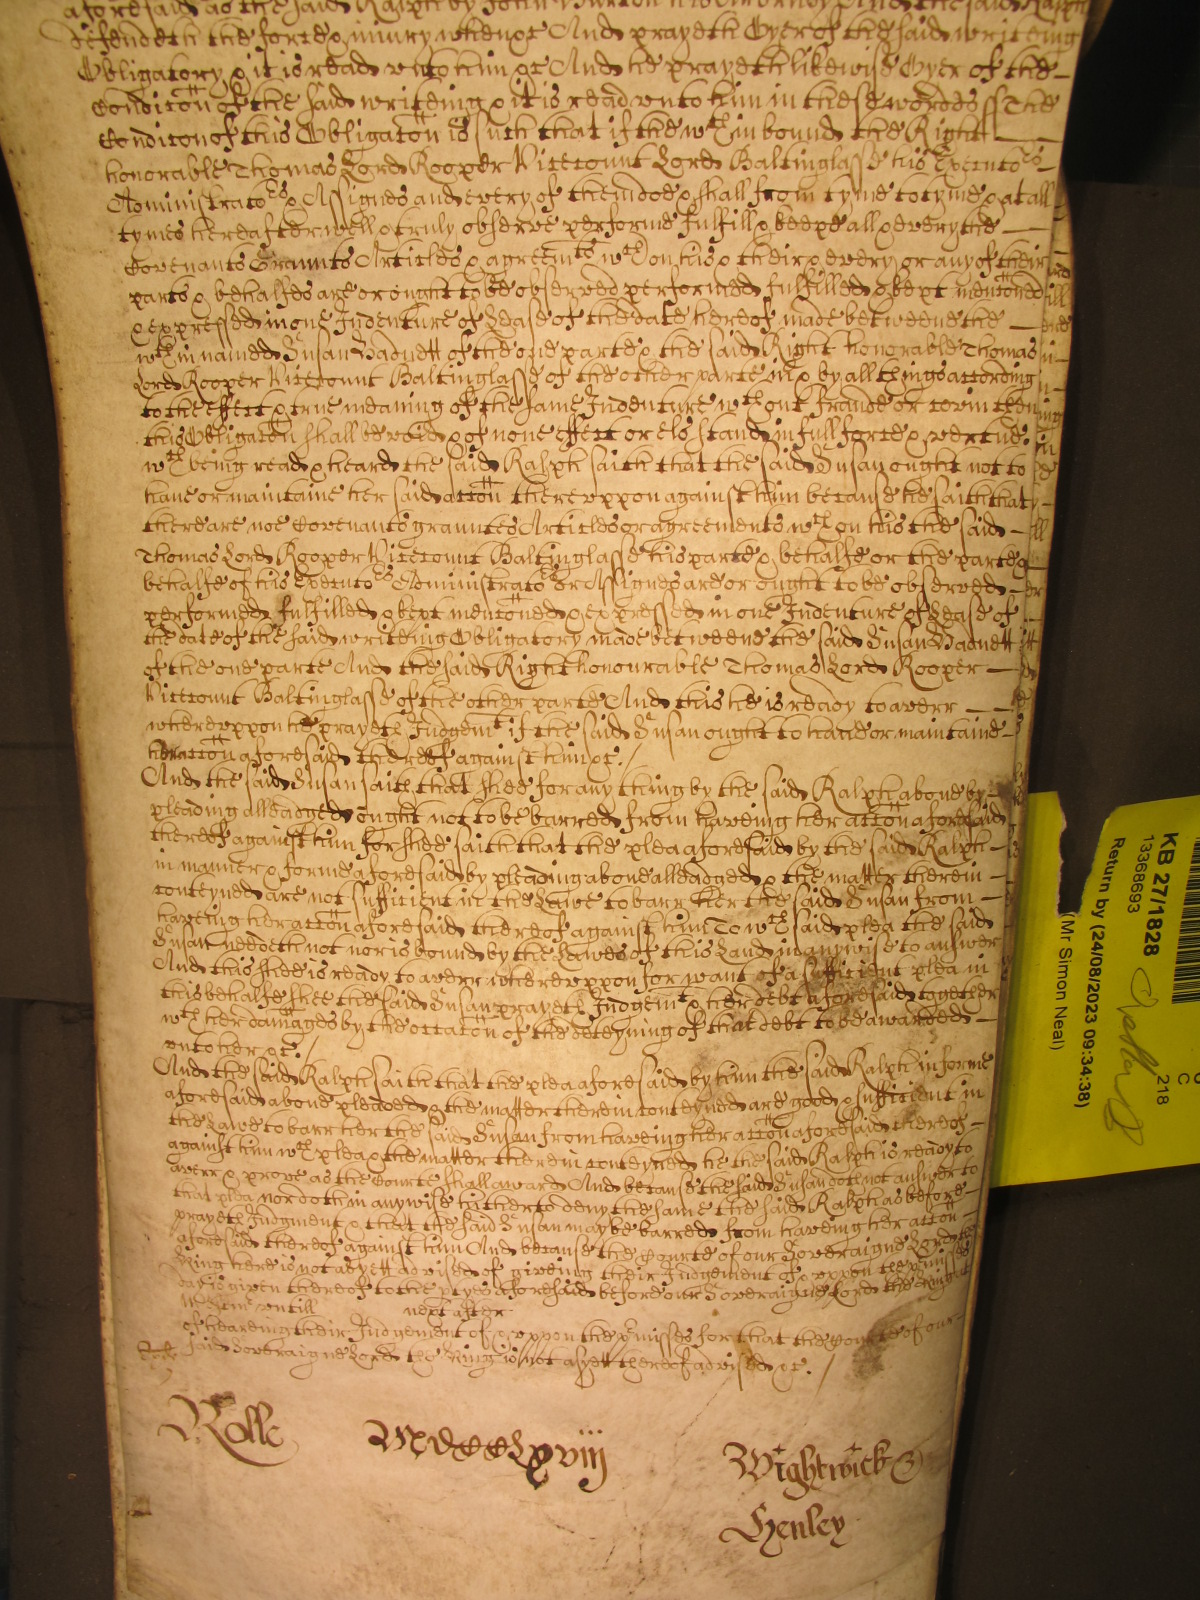 aforesaid as the said Ralph by John Burton his Attorney And the said Ralph
defendeth the force & iniury when &c And prayeth Oyer of the said writeing
Obligatory & it is read vnto him &c And he prayeth likewise Oyer of the
Condicon of the said writeing & it is read vnto him in these wordes ss The
Condicon of this Obligacon is such that if the wthin bound the Right
honorable Thomas Lord Rooper Vicecount Lord Baltinglasse his Executors
Administrators & Assignes and every of them doe & shall from tyme to tyme & at all
tymes hereafter well & truly observe performe fulfill & keepe all & every the
Covenants Graunts Articles & agreemts wch on his & their & every or any of their
parts & behalfes are or ought to be observed performed fulfilled & kept menconed
& expressed in one Indenture of Lease of the date hereof made betweene the
wthin named Susan Badnett of the one parte & the said Right honorable Thomas
Lord Rooper Vicecount Baltinglasse of the other parte in & by all things according
to the effect & true meaning of the same Indenture wthout fraude or covin then
this Obligacon shall be void & of none effect or els stand in full force & vertue.
wch being read & heard the said Ralph saith that the said Susan ought not to
haue or maintaine her said accon therevppon against him because he saith that
there are noe Covenants grauntes Articles or agreements wch on his the said
Thomas Lord Rooper Vicecount Baltinglasse his parte & behalfe or the parte &
behalfe of his Executors Administrators or Assignes are or ought to be observed
performed fulfilled & kept menconed & expressed in one Indenture of Lease of
the date of the said writeing Obligatory made betweene the said Susan Badnett
of the one parte And the said Right honourable Thomas Lord Rooper
Vicecount Baltinglasse of the other parte And this he is ready to averr
wherevppon he prayeth Iudgemt if the said Susan ought to haue or maintaine
her accon aforesaid thereof against him &c.
And the said Susan saith that shee for any thing by the said Ralph aboue by
pleading alleadged ought not to be barred from haveing her accon aforesaid
thereof against him for shee saith that the plea aforesaid by the said Ralph
in manner & forme aforesaid by pleading aboue alleadged & the matter therein
conteyned are not sufficient in the Lawe to barr her the said Susan from
haveing her accon aforesaid thereof against him To wch said plea the said
Susan needeth not nor is bound by the Lawes of this Land in any wise to answer
And this shee is ready to averr wherevppon for want of a sufficient plea in
this behalfe shee the said Susan prayeth Iudgemt & her debt aforesaid together
wth her damages by the occacon of the deteyning of that debt to be awarded
vnto her &c.
And the said Ralph saith that the plea aforesaid by him the said Ralph in forme
aforesaid aboue pleaded & the matter therein conteyned are good & sufficient in
the Lawe to barr her the said Susan from haveing her accon aforesaid thereof
against him wch plea & the matter therein conteyned he the said Ralph is ready to
averr & prove as the Courte shall award And because the said Susan doth not answer to
that plea nor doth in any wise hitherto deny the same the said Ralph as before
prayeth Iudgment & that the said Susan may be barred from haveing her accon
aforesaid thereof against him And because the Courte of our Soveraigne Lord the
King here is not as yett advised of giveing their Iudgement of & vppon the premisses
day is given thereof to the ptyes aforesaid before our Soveraigne Lord the King att
Westm vntill next after
of heareing their Iudgement of & vppon the premisses for that the Courte of our
said Soveraigne Lord the King is not as yett thereof advised &c.
Rolle MDCCLxviij Wightwick &
Henley
KB 27/1828
13368693
Return by (24/08/2023 09:34:38)
(Mr Simon Neal)
C
218